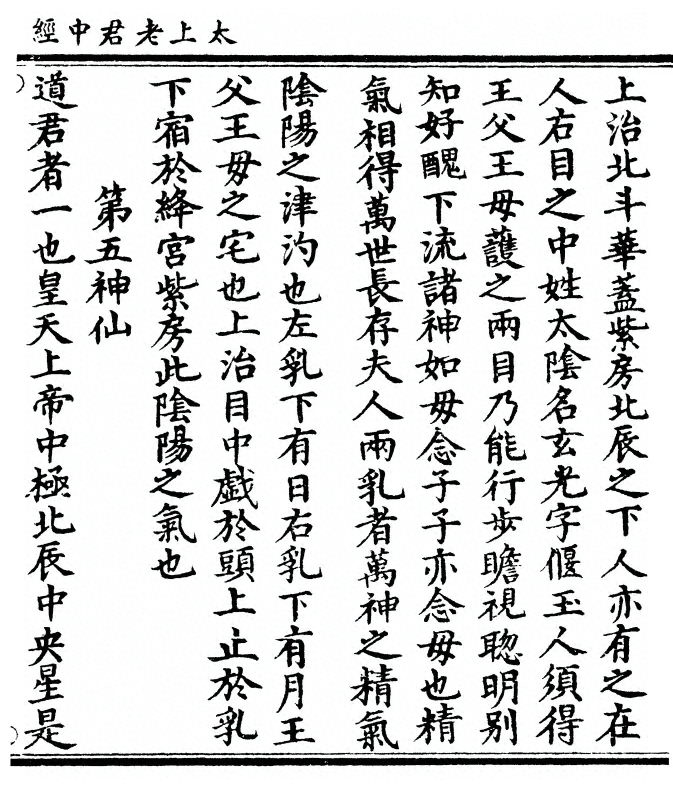 太上老君中經
上治北斗華蓋紫房北辰之下人亦有之在
人右目之中姓太陰名玄光字偃玉人須得
王父王母護之兩目乃能行步瞻視聰明別
知好醜下流諸神如母念子子亦念母也精
氣相得萬世長存夫人兩乳者萬神之精氣
陰陽之津汋也左乳下有日右乳下有月王
父王母之宅也上治目中戲於頭上止於乳
下宿於絳宮紫房此陰陽之氣也
第五神仙
道君者一也皇天上帝中極北辰中央星是